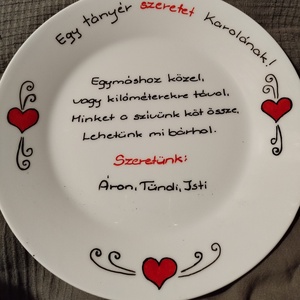 Egy tányér szeretet Karolának!
Egymáshoz közel,
vagy kilóméterekre távol,
Minket a szivünk köt össze,
Lehetünk mi bárhol.
Szeretünk:
Áron, Tündi, Isti